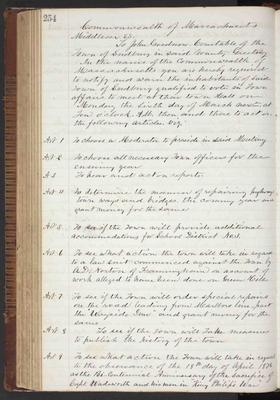 254
Commonwealth of Massachusetts
Middlesex SS.
To John Goodnow Constable of the
Town of Sudbury in said County Greeting
In the name of the Commonwealth of
Massachusetts you are hereby required
to notify and warn the inhabitants of said
Town of Sudbury qualified to vote in Town
affairs to meet at the Town Hall on
Monday the sixth day of March next at
ten o'clock A.M. then and there to act on
the following articles Viz
Art 1 To choose a Moderator to preside in said Meeting
Art 2 To choose all necessary Town Officers for the
ensuing year
Art 3 To hear and act on reports
Art 4 To determine the manner of repairing highway
town ways and bridges, the coming year and
grant money for the same
Art 5 To see if the Town will provide additional
accommodations for School District No
Art 6 To see what action the Town will take in regard
to a law suit commenced against the Town by
of Framingham on account of
work alleged to have been done on Hill
Art 7 To see if the Town will order special repairs
on the road leading from Marlboro line past
the Wayside Inn and grant money for the
same
Art 8 To see if the Town will take measures
to publish the history of the town
Art 9 To see what action the Town will take in regard
to the observance of the 18th day of April 1876
as the Bi-Centennial Anniversary of the Sacrifice of
Capt Wadsworth and his men in King Philips War